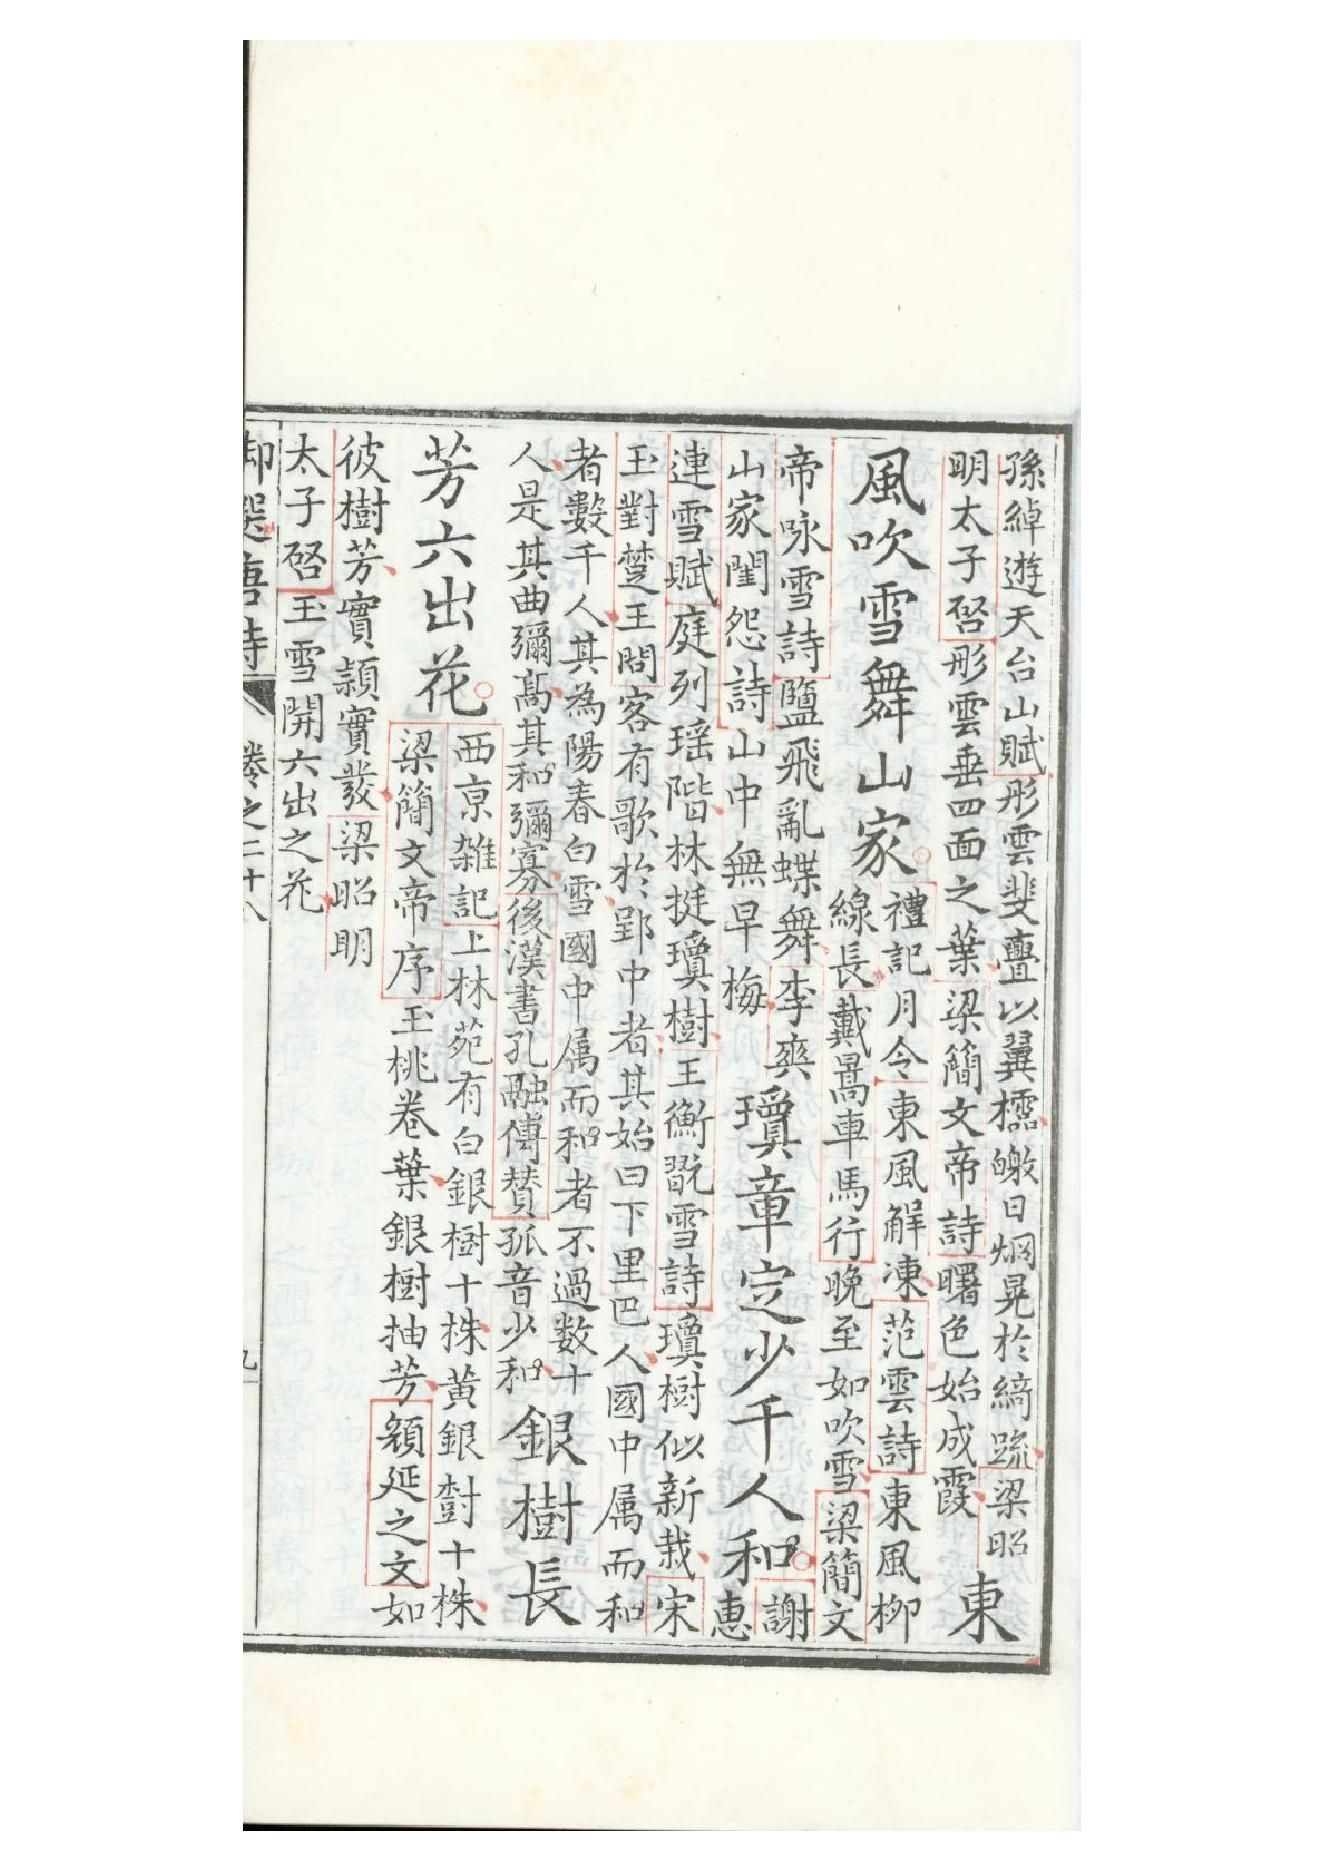 孫綽遊天台山賦彤雲斐亹以翼櫺皦日烱晃於綺疏梁昭
明太子啓彤雲垂四面之葉梁簡文帝詩曙色始成霞
東
風吹雪舞山家
禮記月令東風解凍范雲詩東風柳
線長戴暠車馬行晚至如吹雪梁簡文
帝咏雪詩鹽飛亂蝶舞李爽
山家閨怨詩山中無早梅
瓊章定少千人和
謝
惠
連雪賦庭列瑶階林挺瓊樹王衡翫雪詩瓊樹似新栽宋
玉對楚王問客有歌於郢中者其始曰下里巴人國中属而和
者數千人其為陽春白雪國中属而和者不過数十
人是其曲彌髙其和彌寡後漢書孔融傳賛孤音少和
銀樹長
芳六出花
西京雜記上林苑有白銀樹十株黄銀樹十株
梁簡文帝序玉桃卷葉銀樹抽芳顏延之文如
彼樹芳實頴實發梁昭明
太子啓玉雪開六出之花
御選唐詩 卷之二十八 九